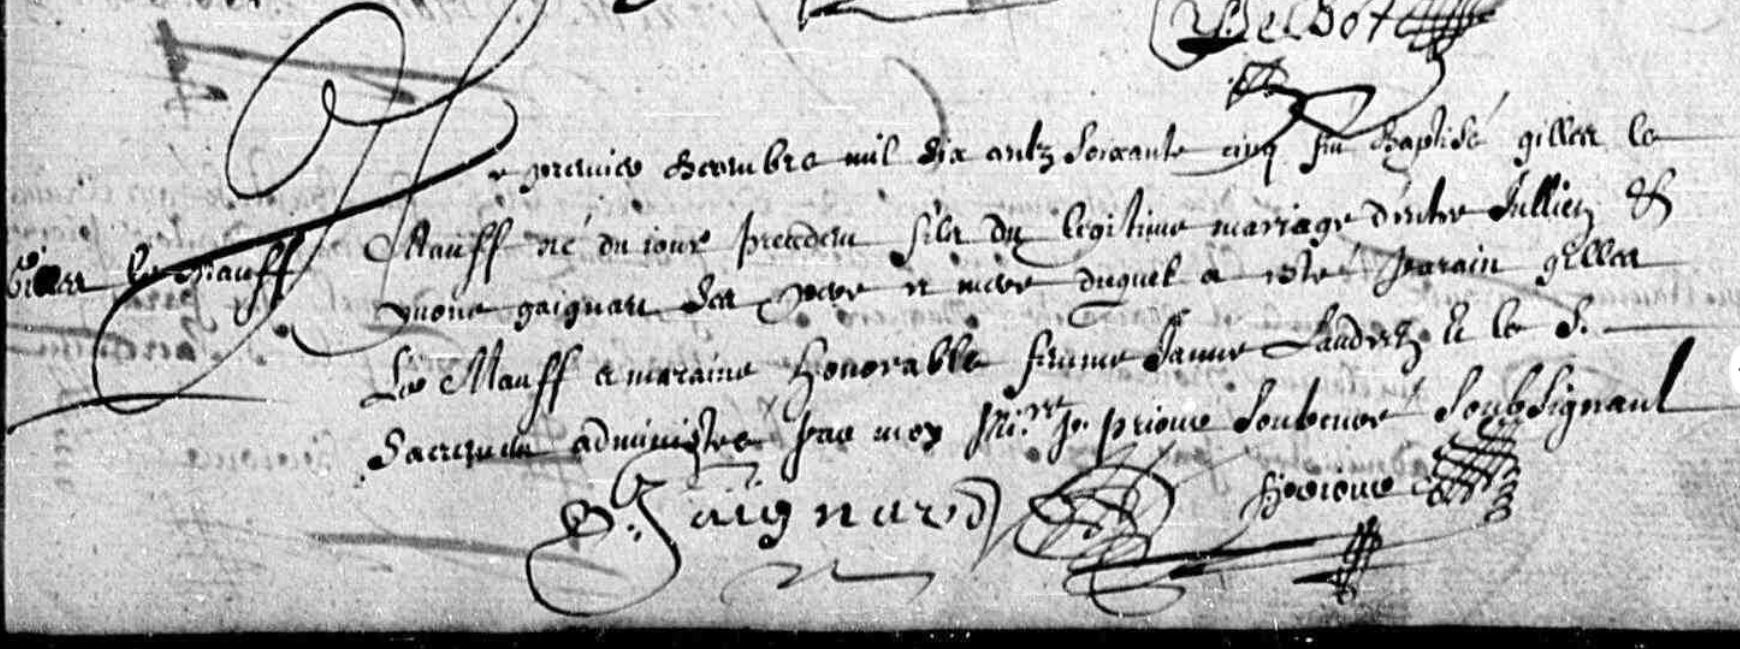 Belbot
Le premier decembre mil six centz soixante cinq fut Baptisé gilles le
Mauff né du jour precedent filz du legitime mariage d'entre Jullien &
yvone gaignart ses pere et mere duquel a esté parain gilles
Gilles le Mauff
Le Mauff et maraine honorable femme Janne Landretz Et le S.
Sacrement administré par moy pr. priour soubcuré soubsignant
G. Gaignard